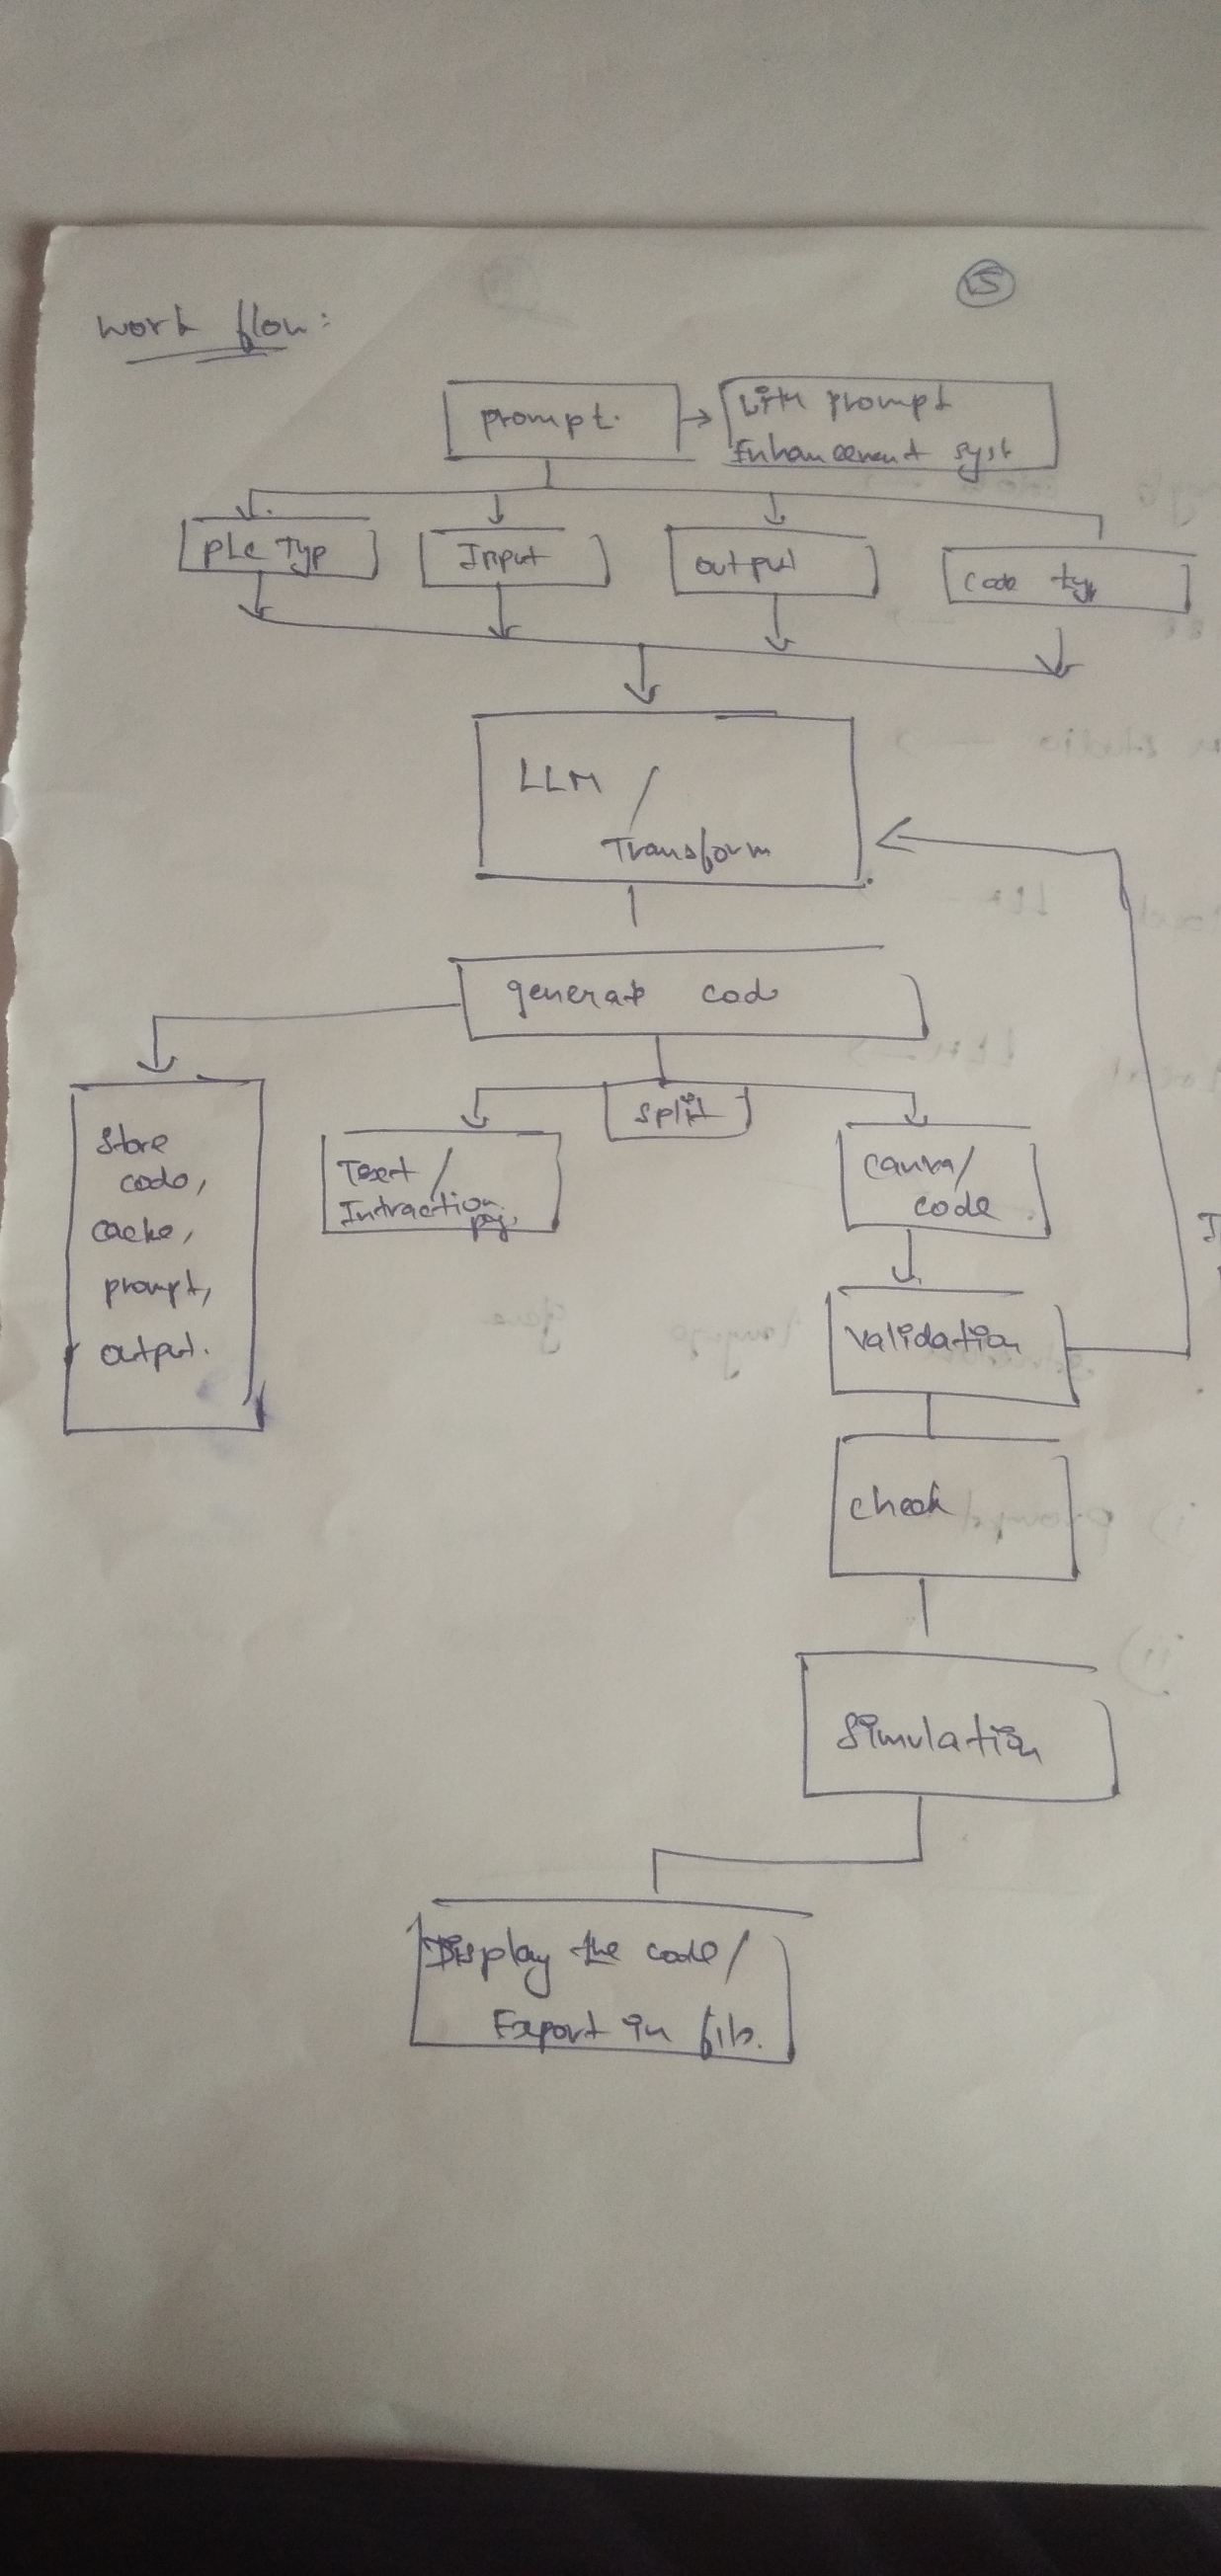 15
work flow:
prompt.
with prompt
Enhancement syst
PLC Typ
Input
output
code typ
LLM /
Transform
generate code
split
Store
code,
cache,
prompt,
output.
Text /
Intraction
pg.
canva/
code
validation
check
Simulation
Display the code/
Export in file.